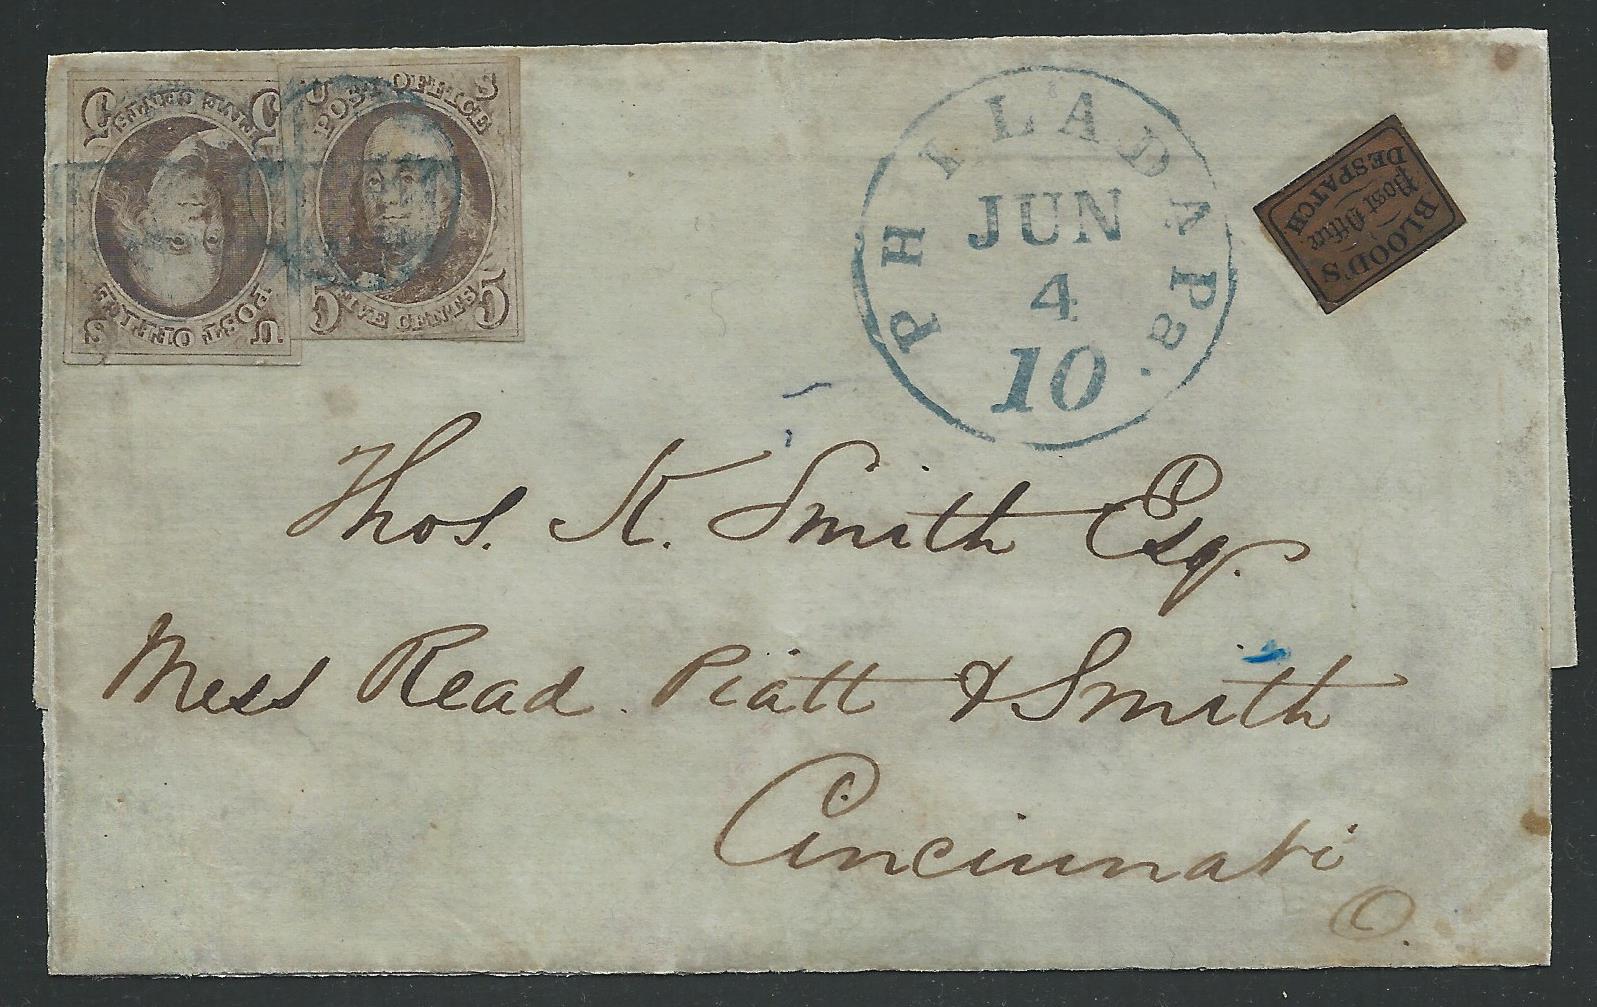 FIVE CENTS
5 5
POST OFFICE
U S
U S
POST OFFICE
5 5
FIVE CENTS
PHILADA Pa.
JUN
4
10
BLOOD'S
Post Office
DESPATCH
Thos. K. Smith Esq.
Mess Read Piatt & Smith
Cincinnati
O.